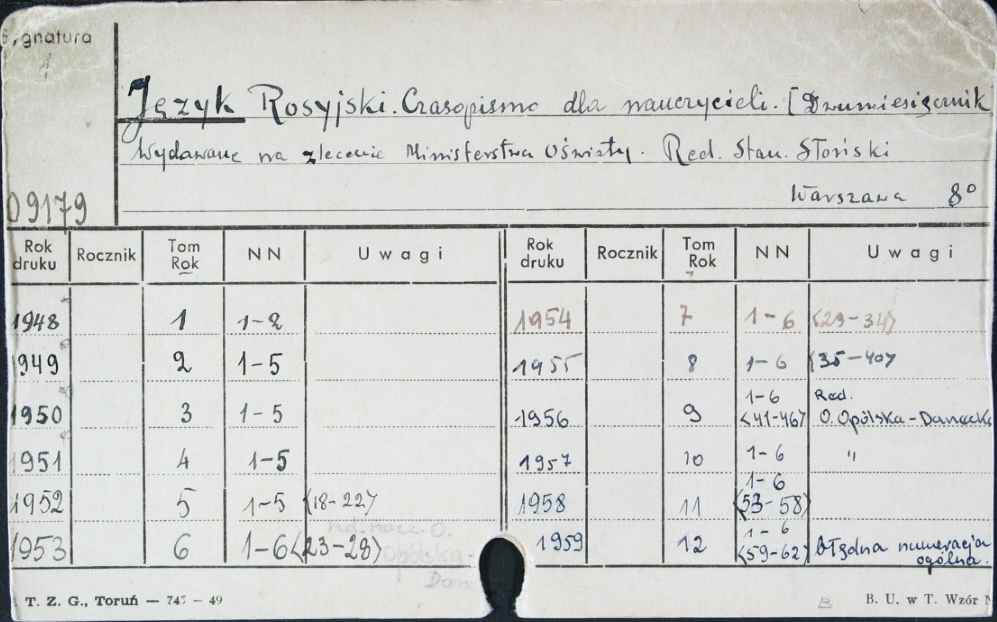 Sygnatura
Język Rosyjski. Czasopismo dla nauczycieli. [Dwumiesięcznik
Wydawane na zlecenie Ministerstwa Oświaty. Red. Stan. Słoński
Warszawa 8°
09179
Rok druku Rocznik Tom Rok NN Uwagi Rok druku Rocznik Tom Rok NN Uwagi
1948 1 1-2 1954 7 1-6 <29-34>
1949 2 1-5 1955 8 1-6 <35-40>
1950 3 1-5 1956 9 1-6 <41-46> Red. O. Opólska-Danecka
1951 4 1-5 1957 10 1-6 "
1952 5 1-5 <18-22> 1958 11 1-6 <53-58>
1953 6 1-6 <23-28> 1959 12 1-6 <59-62> błędna numeracja ogólna.
Opólska-
Dan
T. Z. G., Toruń — 747 — 49 B. U. w T. Wzór